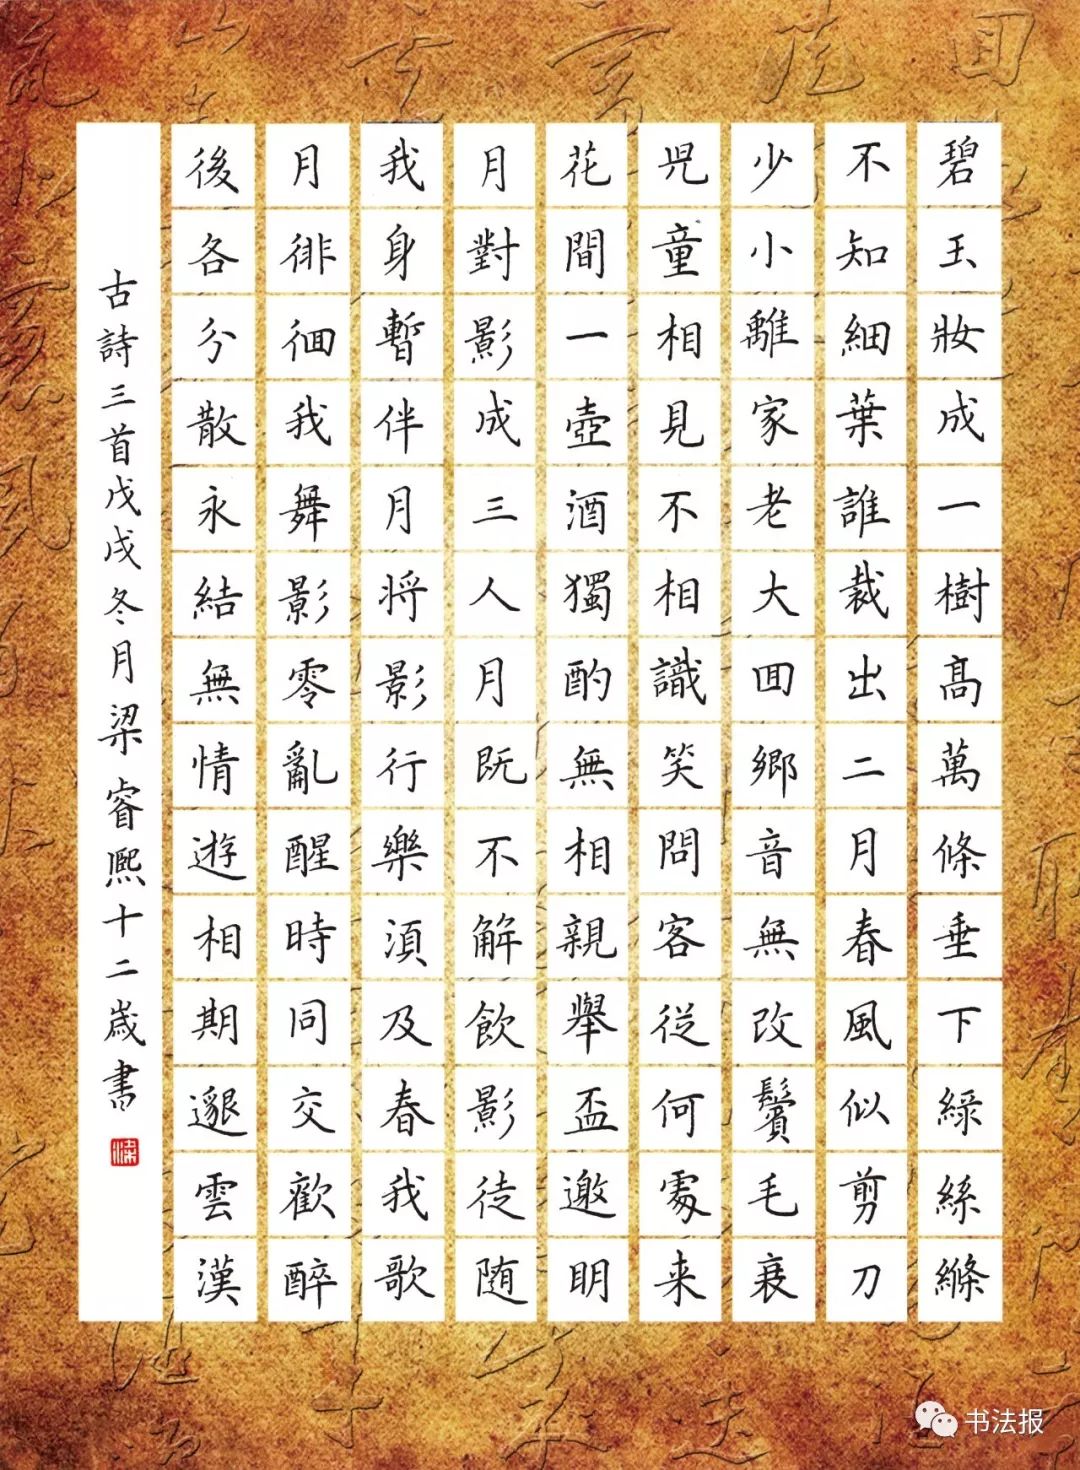 碧玉妝成一樹高萬條垂下綠絲絛
不知細葉誰裁出二月春風似剪刀
少小離家老大回鄉音無改鬢毛衰
兒童相見不相識笑問客從何處来
花間一壺酒獨酌無相親舉盃邀明
月對影成三人月既不解飲影徒随
我身暫伴月将影行樂須及春我歌
月徘徊我舞影零亂醒時同交歡醉
後各分散永結無情遊相期邈雲漢
古詩三首戊戌冬月梁睿熙十二歲書
梁
书法报